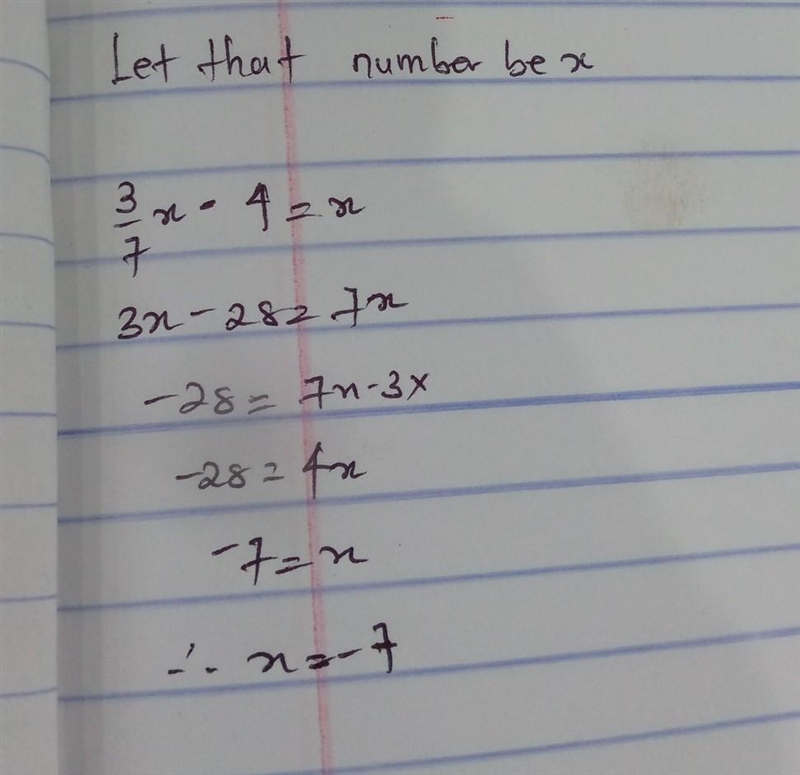 Let that number be x
3/7 x - 4 = x
3x - 28 = 7x
-28 = 7x - 3x
-28 = 4x
-7 = x
∴ x = -7